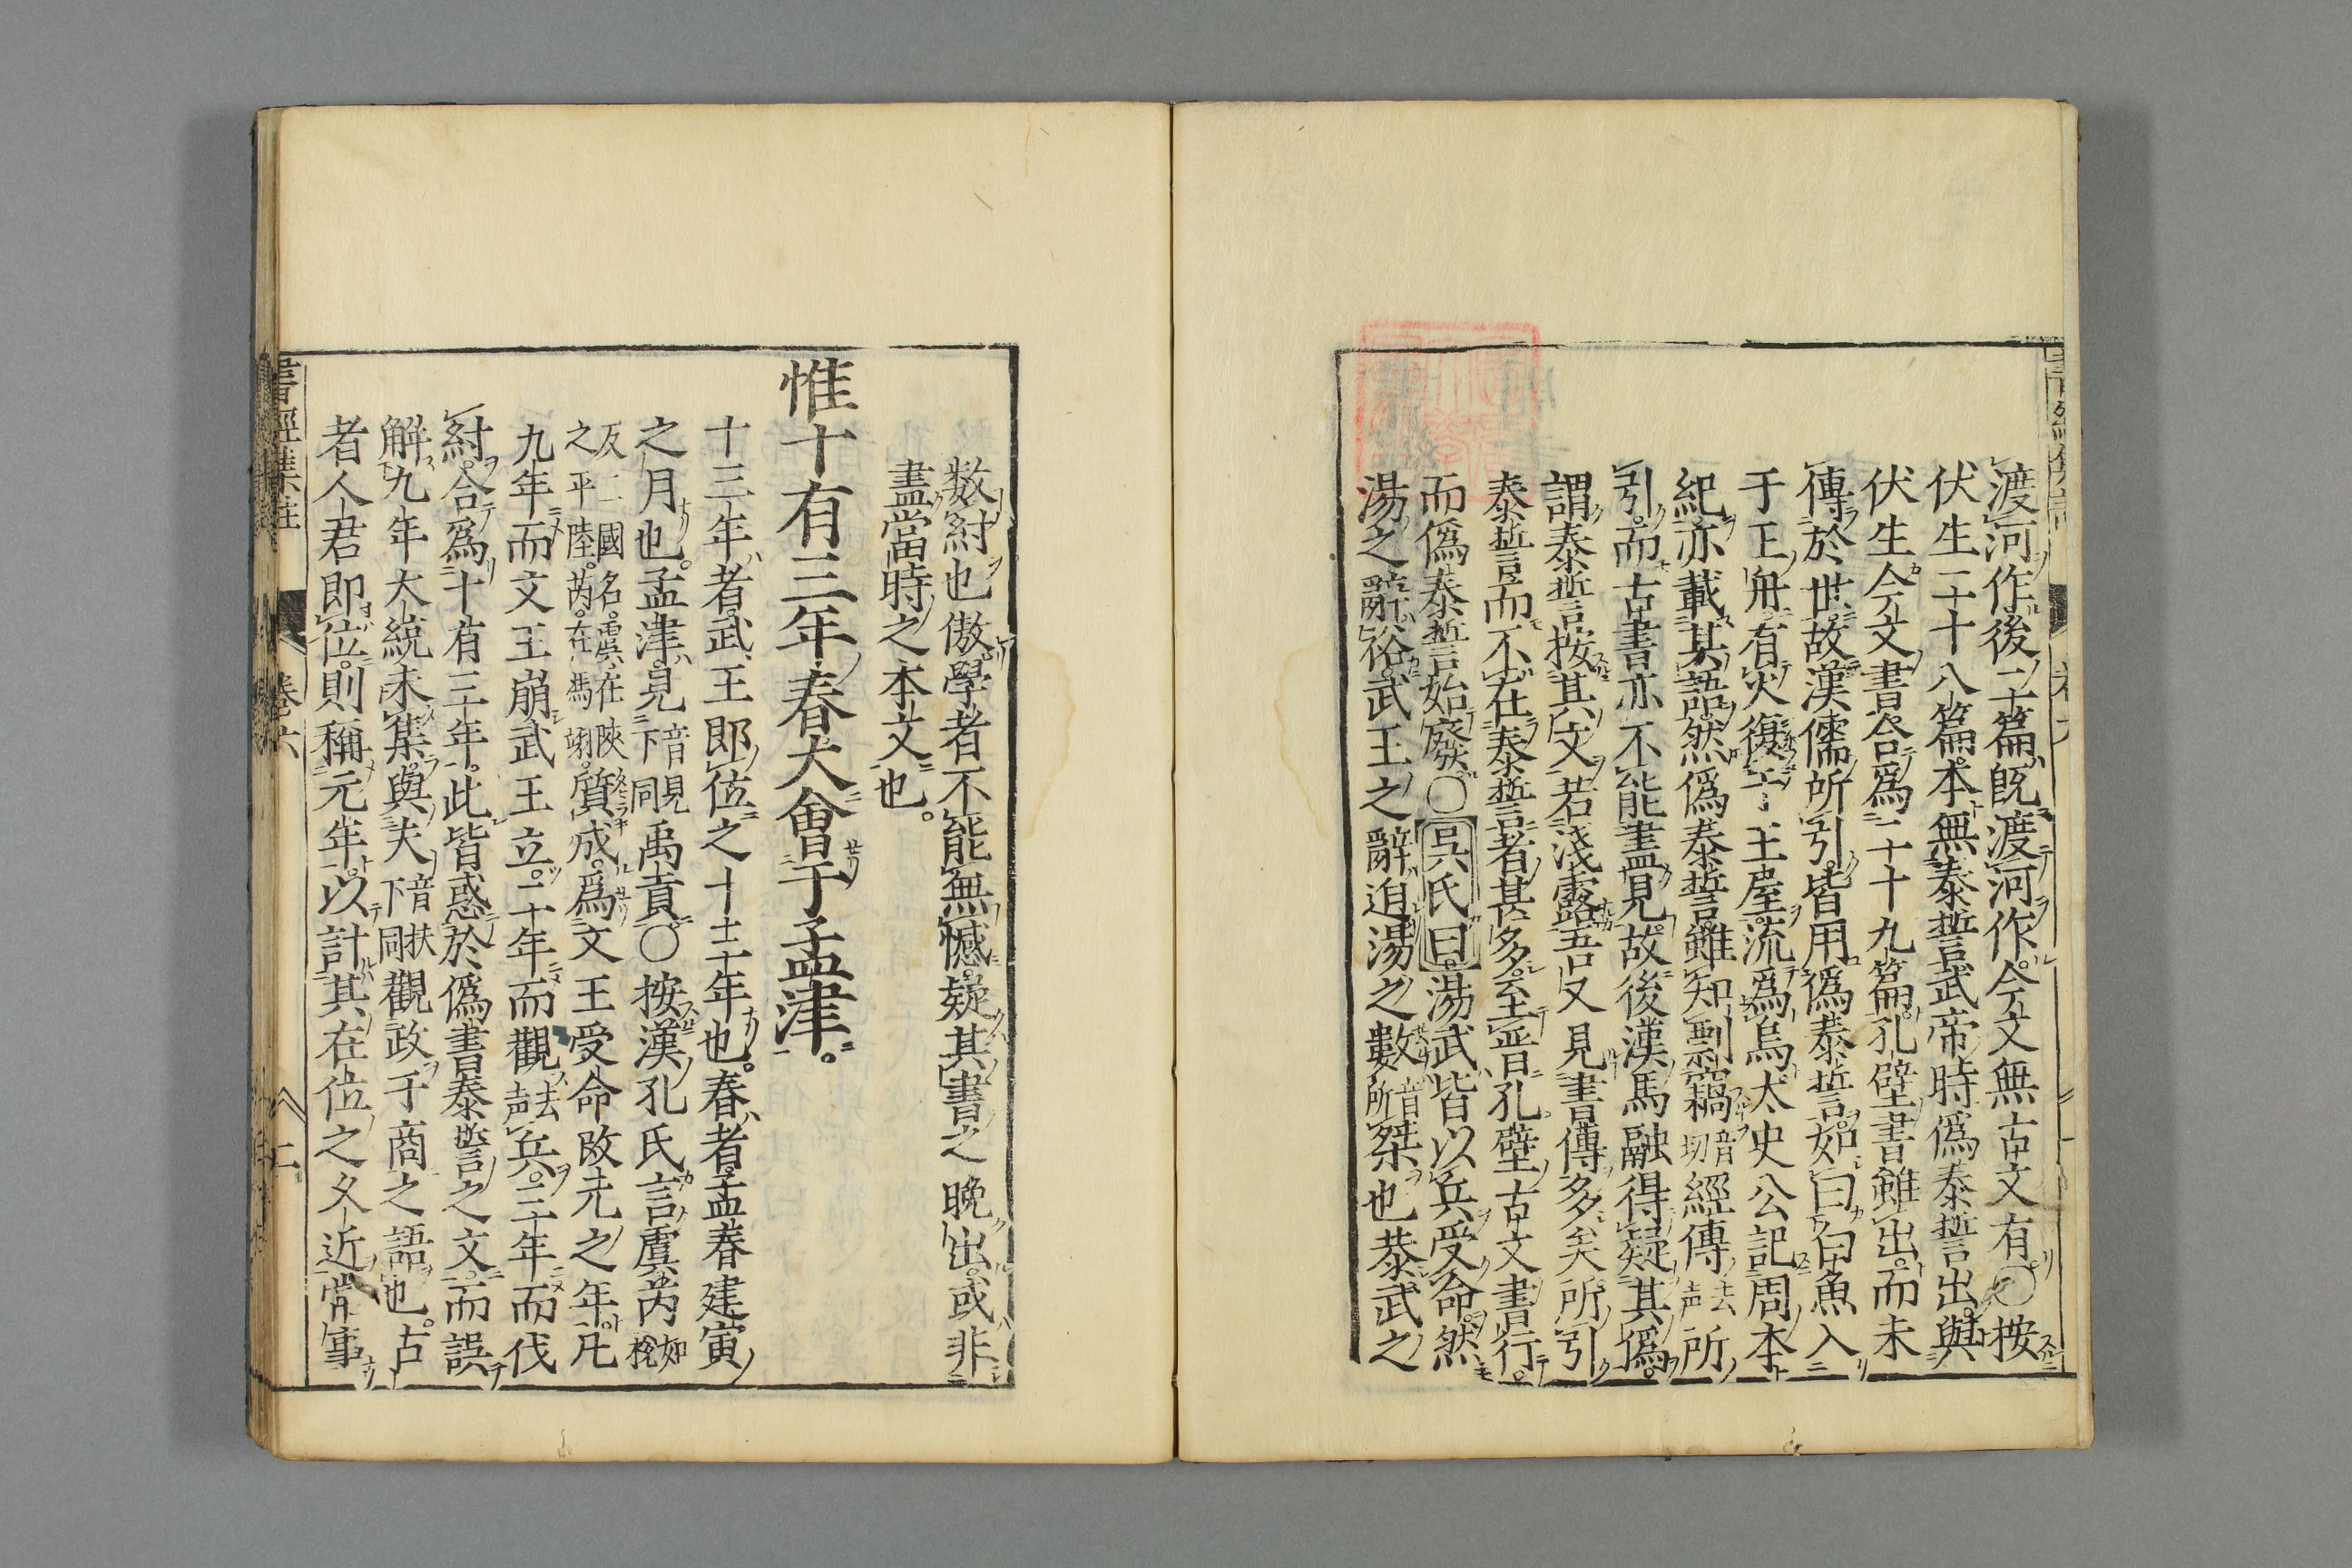 渡河作後二篇既渡河作今文無古文有○按
伏生二十八篇本無泰誓武帝時偽泰誓出與
伏生今文書合爲二十九篇孔壁書雖出而未
傳於世故漢儒所引皆用偽泰誓如曰白魚入
于王舟有火復于王屋流爲烏太史公記周本
紀亦載其語然偽泰誓雖知剽竊音切經傳去声所
引而古書亦不能盡見故後漢馬融得疑其偽
謂泰誓按其文若淺露吾又見書傳多矣所引
泰誓而不在泰誓者甚多至晋孔壁古文書行
而偽泰誓始廢○吳氏曰湯武皆以兵受命然
湯之辭裕武王之辭迫湯之數音所桀也恭武之
数紂也傲學者不能無憾疑其書之晚出或非
盡當時之本文也
惟十有三年春大會于孟津
十三年者武王即位之十三年也春者孟春建寅
之月也孟津見音見下同禹貢○按漢孔氏言虞芮如梲
反二國名虞在陝之平陸芮在馮翊質成爲文王受命改元之年凡
九年而文王崩武王立二年而觀去声兵三年而伐
紂合爲十有三年此皆惑於偽書泰誓之文而誤
解九年大統未集與夫音扶下同觀政于商之語也古
者人君即位則稱元年以計其在位之久近常事
書經集註 卷六 二